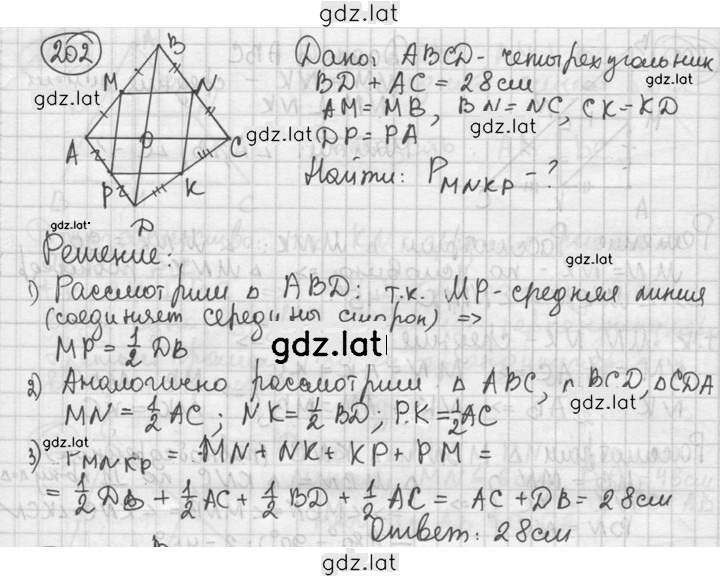 gdz.lat
202
B
M
N
gdz.lat
A
O
C
P
K
D
Дано: ABCD - четырехугольник
gdz.lat
BD + AC = 28 см
AM = MB, BN = NC, CK = KD
gdz.lat
gdz.lat
DP = PA
Найти: P MNKP - ?
gdz.lat
Решение:
gdz.lat
1) Рассмотрим △ ABD: т.к. MP - средняя линия
(соединяет середины сторон) =>
MP = 1/2 DB
gdz.lat
2) Аналогично рассмотрим △ ABC, △ BCD, △ CDA
gdz.lat
MN = 1/2 AC; NK = 1/2 BD; PK = 1/2 AC
gdz.lat
3) P MNKP = MN + NK + KP + PM =
= 1/2 DB + 1/2 AC + 1/2 BD + 1/2 AC = AC + DB = 28 см
Ответ: 28 см
gdz.lat